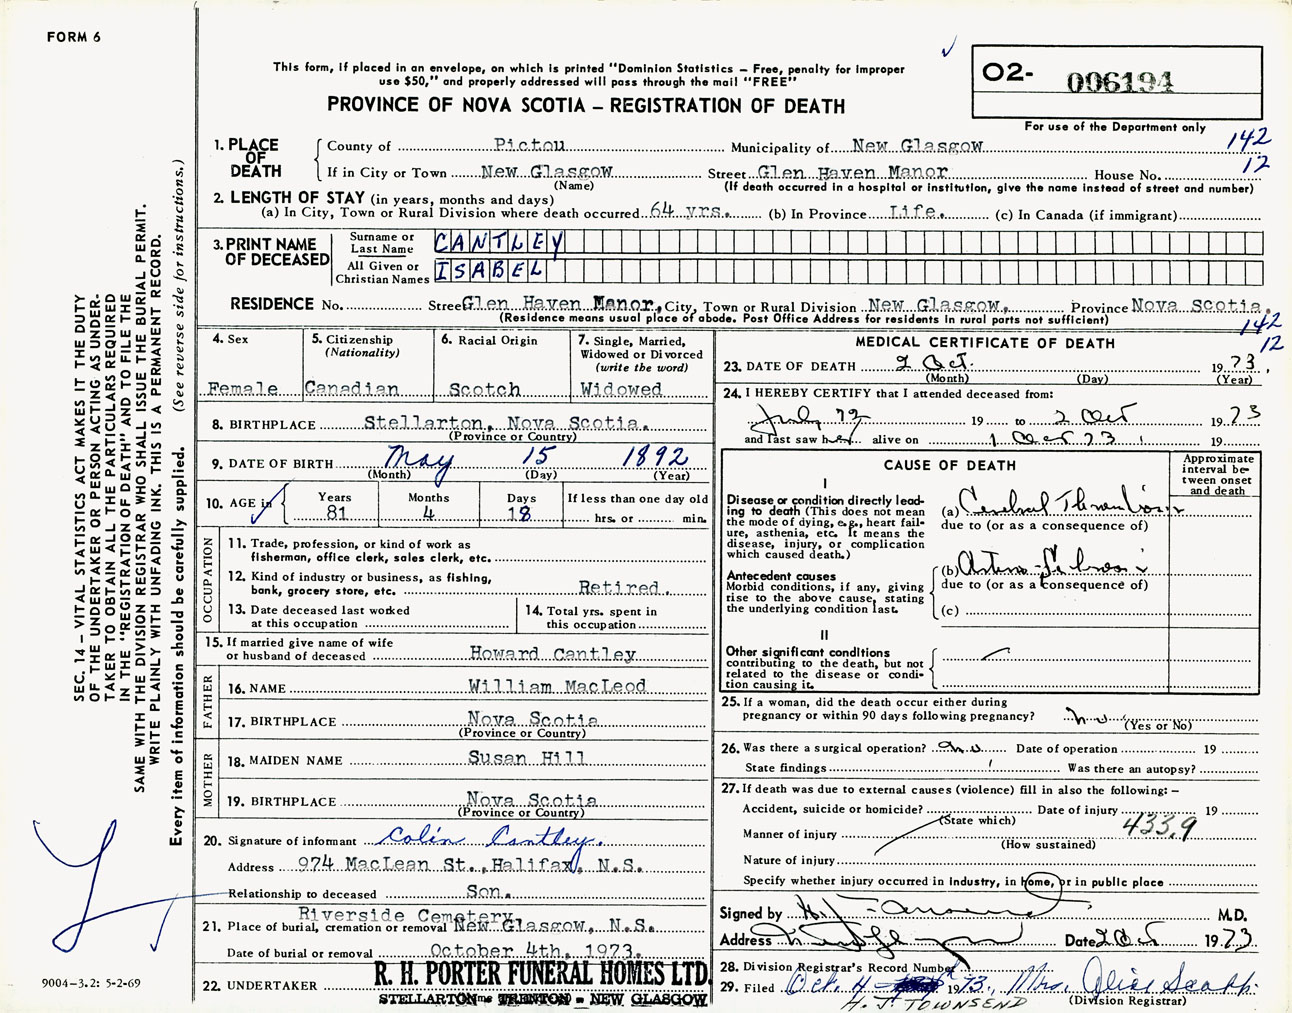 FORM 6
This form, if placed in an envelope, on which is printed "Dominion Statistics – Free, penalty for improper
use $50," and properly addressed will pass through the mail "FREE"
PROVINCE OF NOVA SCOTIA – REGISTRATION OF DEATH
02- 006194
For use of the Department only
142
12
1. PLACE OF DEATH
County of Pictou Municipality of New Glasgow
If in City or Town New Glasgow Street Glen Haven Manor House No.
(Name) (If death occurred in a hospital or institution, give the name instead of street and number)
2. LENGTH OF STAY (in years, months and days)
(a) In City, Town or Rural Division where death occurred 64 yrs. (b) In Province Life. (c) In Canada (if immigrant)
3. PRINT NAME OF DECEASED
Surname or Last Name CANTLEY
All Given or Christian Names ISABEL
RESIDENCE No. Street Glen Haven Manor, City, Town or Rural Division New Glasgow, Province Nova Scotia.
(Residence means usual place of abode. Post Office Address for residents in rural parts not sufficient)
142
12
4. Sex
Female
5. Citizenship
(Nationality)
Canadian
6. Racial Origin
Scotch
7. Single, Married,
Widowed or Divorced
(write the word)
Widowed
8. BIRTHPLACE Stellarton, Nova Scotia.
(Province or Country)
9. DATE OF BIRTH May 15 1892
(Month) (Day) (Year)
10. AGE in
Years Months Days If less than one day old
81 4 18 hrs. or min.
OCCUPATION
11. Trade, profession, or kind of work as
fisherman, office clerk, sales clerk, etc.
12. Kind of industry or business, as fishing,
bank, grocery store, etc. Retired.
13. Date deceased last worked
at this occupation
14. Total yrs. spent in
this occupation
15. If married give name of wife
or husband of deceased Howard Cantley
FATHER
16. NAME William MacLeod
17. BIRTHPLACE Nova Scotia
(Province or Country)
MOTHER
18. MAIDEN NAME Susan Hill
19. BIRTHPLACE Nova Scotia
(Province or Country)
20. Signature of informant Colin Cantley.
Address 974 MacLean St., Halifax, N.S.
Relationship to deceased Son.
Riverside Cemetery
21. Place of burial, cremation or removal New Glasgow, N.S.
Date of burial or removal October 4th, 1973.
22. UNDERTAKER R. H. PORTER FUNERAL HOMES LTD.
STELLARTON - TRENTON - NEW GLASGOW
MEDICAL CERTIFICATE OF DEATH
23. DATE OF DEATH 2 Oct. 1973.
(Month) (Day) (Year)
24. I HEREBY CERTIFY that I attended deceased from:
July 72 19 to 2 Oct 1973
and last saw her alive on 1 Oct 73 19
CAUSE OF DEATH
Approximate
interval be-
tween onset
and death
I
Disease or condition directly lead-
ing to death (This does not mean
the mode of dying, e.g., heart fail-
ure, asthenia, etc. It means the
disease, injury, or complication
which caused death.)
(a) Cerebral Thrombosis
due to (or as a consequence of)
Antecedent causes
Morbid conditions, if any, giving
rise to the above cause, stating
the underlying condition last.
(b)
due to (or as a consequence of)
(c)
II
Other significant conditions
contributing to the death, but not
related to the disease or condi-
tion causing it.
25. If a woman, did the death occur either during
pregnancy or within 90 days following pregnancy? no
(Yes or No)
26. Was there a surgical operation? no Date of operation 19
State findings Was there an autopsy?
27. If death was due to external causes (violence) fill in also the following: –
Accident, suicide or homicide? Date of injury 19
(State which)
Manner of injury 433.9
(How sustained)
Nature of injury
Specify whether injury occurred in industry, in home, or in public place
Signed by M.D.
Address New Glasgow Date 2 Oct 1973
28. Division Registrar's Record Number
29. Filed Oct. 4 1973, Mrs. Alice Scapp.
H. J. TOWNSEND (Division Registrar)
SEC. 14 – VITAL STATISTICS ACT MAKES IT THE DUTY
OF THE UNDERTAKER OR PERSON ACTING AS UNDER-
TAKER TO OBTAIN ALL THE PARTICULARS REQUIRED
IN THE "REGISTRATION OF DEATH" AND TO FILE THE
SAME WITH THE DIVISION REGISTRAR WHO SHALL ISSUE THE BURIAL PERMIT.
WRITE PLAINLY WITH UNFADING INK. THIS IS A PERMANENT RECORD.
Every item of information should be carefully supplied. (See reverse side for instructions.)
9004-3.2: 5-2-69